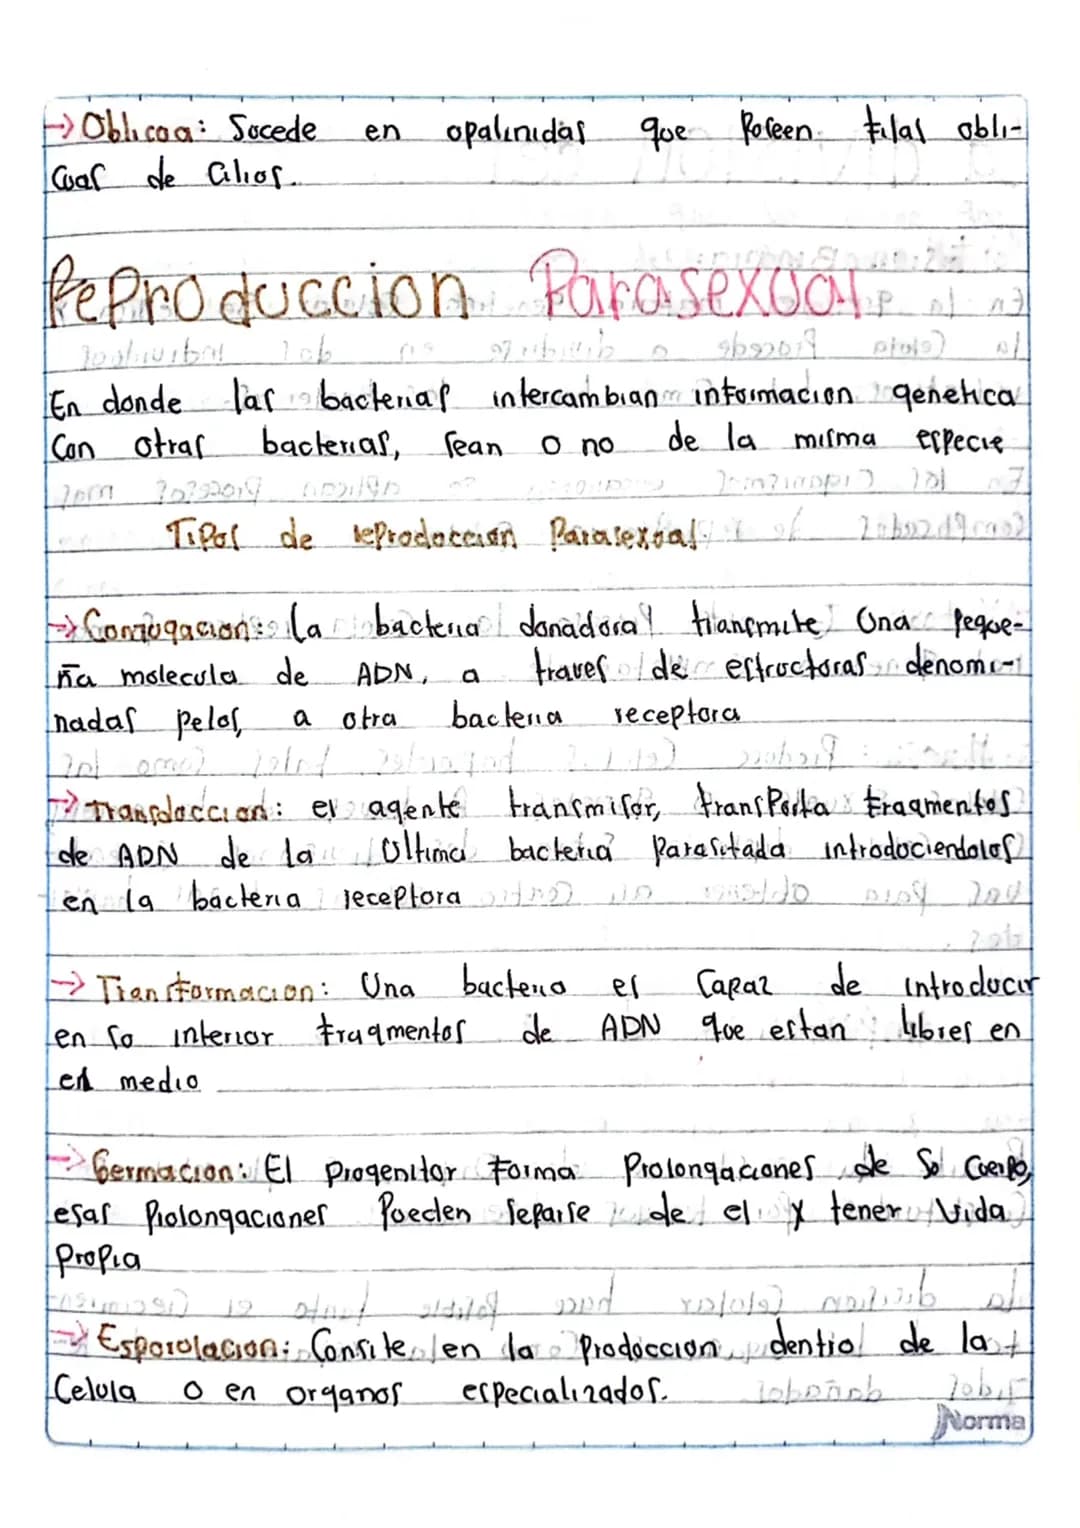 → Oblicua: Sucede en opalinidas que Poseen filas obli-
cuas de Cilios.
Reproduccion Parasexual
En donde las bacterias intercambian informacion genetica
Con otras bacterias, sean o no de la misma especie
Tipos de reproduccion Parasexual
→ Conjugacion: La bacteria donadora transmite Una Peque-
ña molecula de ADN, a traves de estructuras denomi-
nadas pelos, a otra bacteria receptora
→ Transduccion: el agente transmisor, transPorta fragmentos
de ADN de la Ultima bacteria Parasitada introduciendolos
en la bacteria receptora
→ Transformacion: Una bacteria es Capaz de introducir
en su interior fragmentos de ADN que estan libres en
el medio
→ Germacion: El Progenitor Forma Prolongaciones de Su Cuerpo,
esas Prolongaciones Pueden separse de el y tener Vida
Propia
→ Esporulacion: Consite en la Produccion dentro de la
Celula o en organos especializados.
Norma